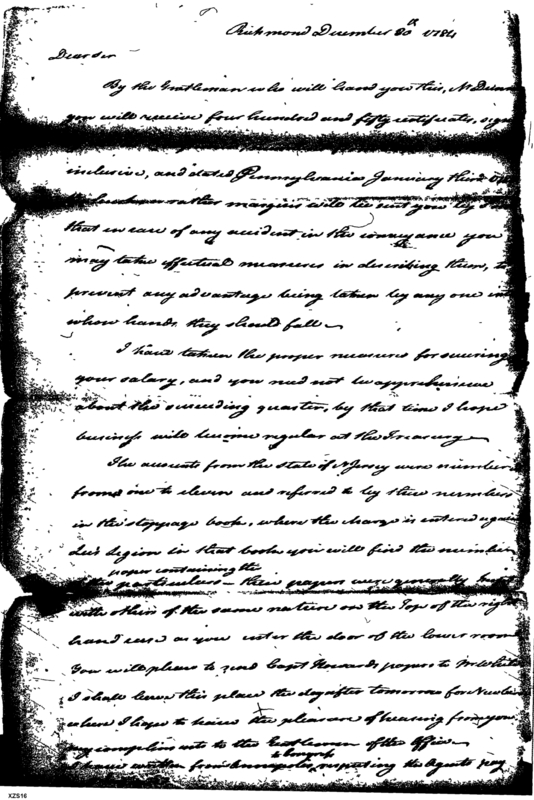 Richmond December 30th 1784
Dear Sir
By the Gentleman who will hand you this, Mr
you will receive four hundred and fifty certificates,
inclusive, and dated Pennsylvania January third
rather margins will be sent you by
that in case of any accident in the conveyance you
may take effectual measures in describing them, to
prevent any advantage being taken by any one in
whose hands they should fall
I have taken the proper measures for securing
your salary, and you need not be apprehensive
about the succeeding quarter, by that time I hope
business will become regular at the Treasury
The accounts from the state of N Jersey were number
from one to eleven and referred to by these numbers
in the stoppage book, where the charge is entered
Lee's Legion in that book you will find the number
paper containing the
particulars these papers were generally kept
with others of the same nature on the Top of the right
hand case as you enter the door of the lower room
You will please to send Capt Howards papers to Mr White
I shall leave this place the day after tomorrow for
where I hope to have the pleasure of hearing from you
my compliments to the Gentlemen of the Office
to Congress
I have written from Annapolis respecting the Agents pay
XZS16